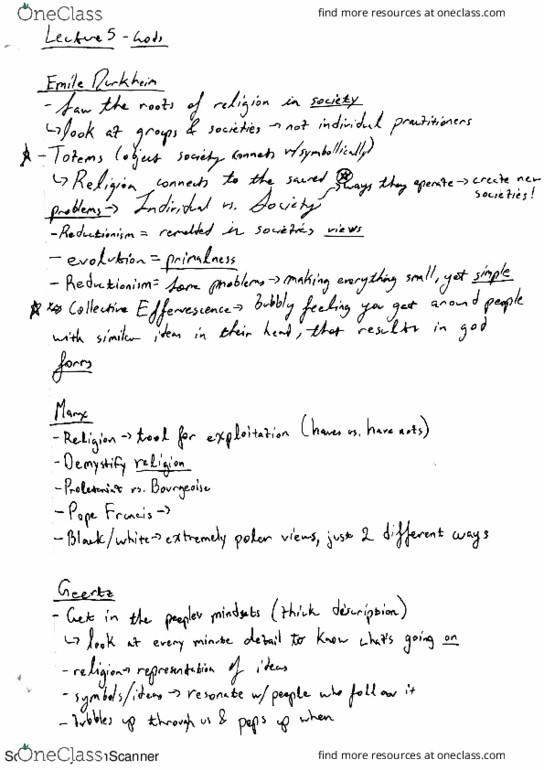 OneClass
find more resources at oneclass.com
Lecture 5 - Gods
Emile Durkheim
- Saw the roots of religion in society
↳ look at groups & societies → not individual practitioners
- Totems (object society connects w/ symbollically)
↳ Religion connects to the sacred ways they operate → create new
societies!
problems → Individual vs. Society
- Reductionism = in societies views
- evolution = primalness
- Reductionism = Same problems → making everything small, yet simple
Collective Effervescence → bubbly feeling you get around people
with similar idea in their head, that results in god
Marx
- Religion → tool for exploitation (haves vs. have nots)
- Demystify religion
- Proletariat vs. Bourgeoise
- Pope Francis →
- Black/white → extremely polar views, just 2 different ways
Geertz
- Get in the peoples mindsets (thick description)
↳ look at every minute detail to know what's going on
- religion → representation of ideas
- symbols/ideas → resonate w/ people who follow it
- bubbles up through us & pops up when
OneClass Scanner
find more resources at oneclass.com